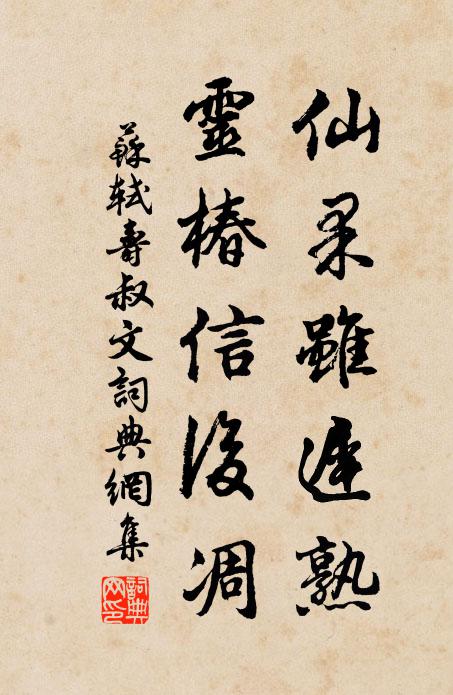 仙果雖遲熟
靈椿信後凋
蘇軾壽叔文詞典網集
詞典網印